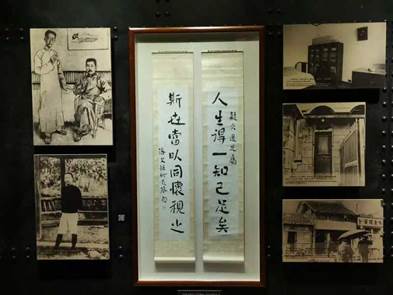 人生得一知己足矣
疑仌道兄屬
斯世當以同懷視之
洛文録何瓦琴句